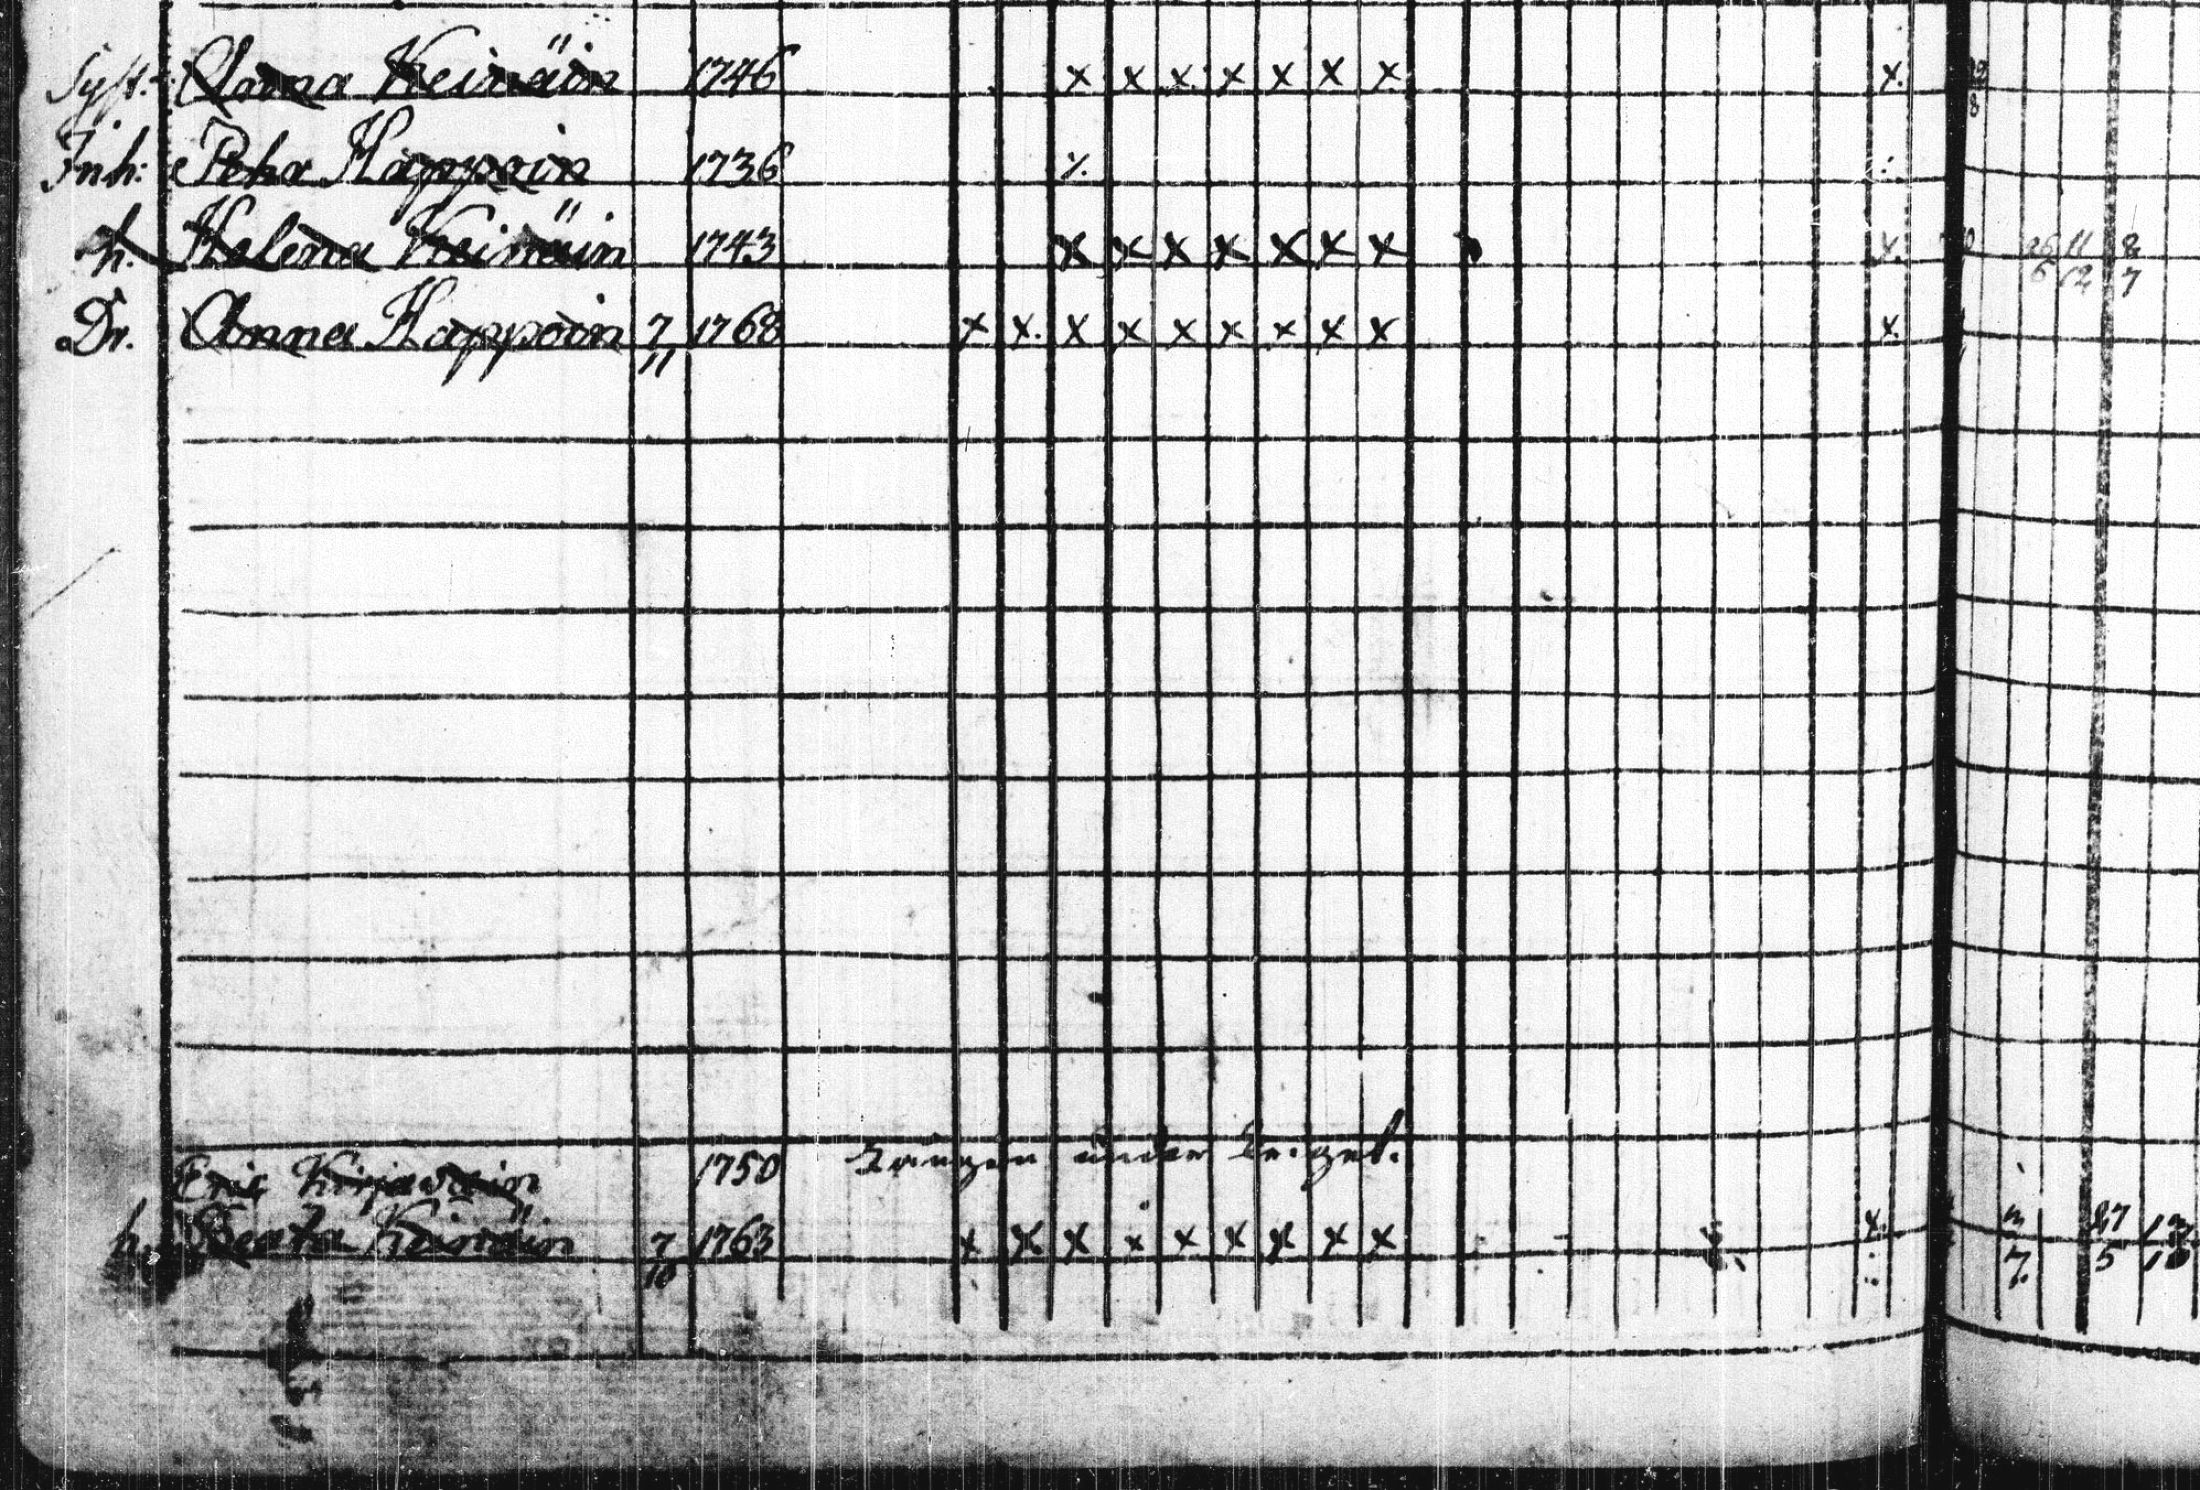 Syst: Anna Keinäin 1746 x x x x x x x x.
Inh: Pehr Happoin 1736 ⁒
h. Helena Keinäin 1743 x x x x x x x x. 26 11 8
6 12 7
Dr. Anna Happoin 7/11 1768 x x. x x x x x x x x.
Eric Kirjavain 1750
h. Beata Keinäin 7/10 1763 x x x x x x x x x x.